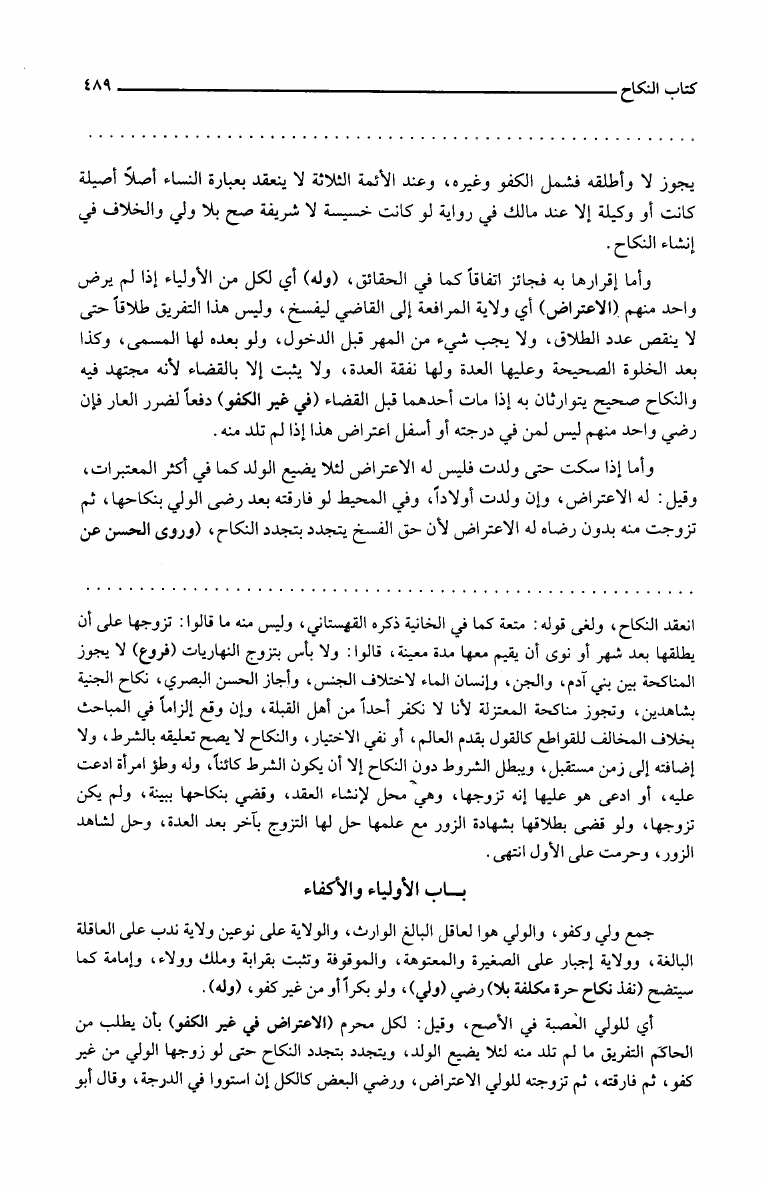 كتاب النكاح ٤٨٩
يجوز لا وأطلقه فشمل الكفو وغيره، وعند الأئمة الثلاثة لا ينعقد بعبارة النساء أصلاً أصيلة
كانت أو وكيلة إلا عند مالك في رواية لو كانت خسيسة لا شريفة صح بلا ولي والخلاف في
إنشاء النكاح.
وأما إقرارها به فجائز اتفاقاً كما في الحقائق، (وله) أي لكل من الأولياء إذا لم يرض
واحد منهم (الاعتراض) أي ولاية المرافعة إلى القاضي ليفسخ، وليس هذا التفريق طلاقاً حتى
لا ينقص عدد الطلاق، ولا يجب شيء من المهر قبل الدخول، ولو بعده لها المسمى، وكذا
بعد الخلوة الصحيحة وعليها العدة ولها نفقة العدة، ولا يثبت إلا بالقضاء لأنه مجتهد فيه
والنكاح صحيح يتوارثان به إذا مات أحدهما قبل القضاء (في غير الكفو) دفعاً لضرر العار فإن
رضي واحد منهم ليس لمن في درجته أو أسفل اعتراض هذا إذا لم تلد منه.
وأما إذا سكت حتى ولدت فليس له الاعتراض لئلا يضيع الولد كما في أكثر المعتبرات،
وقيل: له الاعتراض، وإن ولدت أولاداً، وفي المحيط لو فارقته بعد رضى الولي بنكاحها، ثم
تزوجت منه بدون رضاه له الاعتراض لأن حق الفسخ يتجدد بتجدد النكاح، (وروى الحسن عن
انعقد النكاح، ولغى قوله: متعة كما في الخانية ذكره القهستاني، وليس منه ما قالوا: تزوجها على أن
يطلقها بعد شهر أو نوى أن يقيم معها مدة معينة، قالوا: ولا بأس بتزوج النهاريات (فروع) لا يجوز
المناكحة بين بني آدم، والجن، وإنسان الماء لاختلاف الجنس، وأجاز الحسن البصري، نكاح الجنية
بشاهدين، وتجوز مناكحة المعتزلة لأنا لا نكفر أحداً من أهل القبلة، وإن وقع إلزاماً في المباحث
بخلاف المخالف للقواطع كالقول بقدم العالم، أو نفي الاختيار، والنكاح لا يصح تعليقه بالشرط، ولا
إضافته إلى زمن مستقبل، ويبطل الشروط دون النكاح إلا أن يكون الشرط كائناً، وله وطؤ امرأة ادعت
عليه، أو ادعى هو عليها إنه تزوجها، وهي محل لإنشاء العقد، وقضي بنكاحها ببينة، ولم يكن
تزوجها، ولو قضى بطلاقها بشهادة الزور مع علمها حل لها التزوج بآخر بعد العدة، وحل لشاهد
الزور، وحرمت على الأول انتهى.
بـاب الأولياء والأكفاء
جمع ولي وكفو، والولي هوا لعاقل البالغ الوارث، والولاية على نوعين ولاية ندب على العاقلة
البالغة، وولاية إجبار على الصغيرة والمعتوهة، والموقوفة وتثبت بقرابة وملك وولاء، وإمامة كما
سيتضح (نفذ نكاح حرة مكلفة بلا) رضي (ولي)، ولو بكراً أو من غير كفو، (وله).
أي للولي العصبة في الأصح، وقيل: لكل محرم (الاعتراض في غير الكفو) بأن يطلب من
الحاكم التفريق ما لم تلد منه لئلا يضيع الولد، ويتجدد بتجدد النكاح حتى لو زوجها الولي من غير
كفو، ثم فارقته، ثم تزوجته للولي الاعتراض، ورضي البعض كالكل إن استووا في الدرجة، وقال أبو